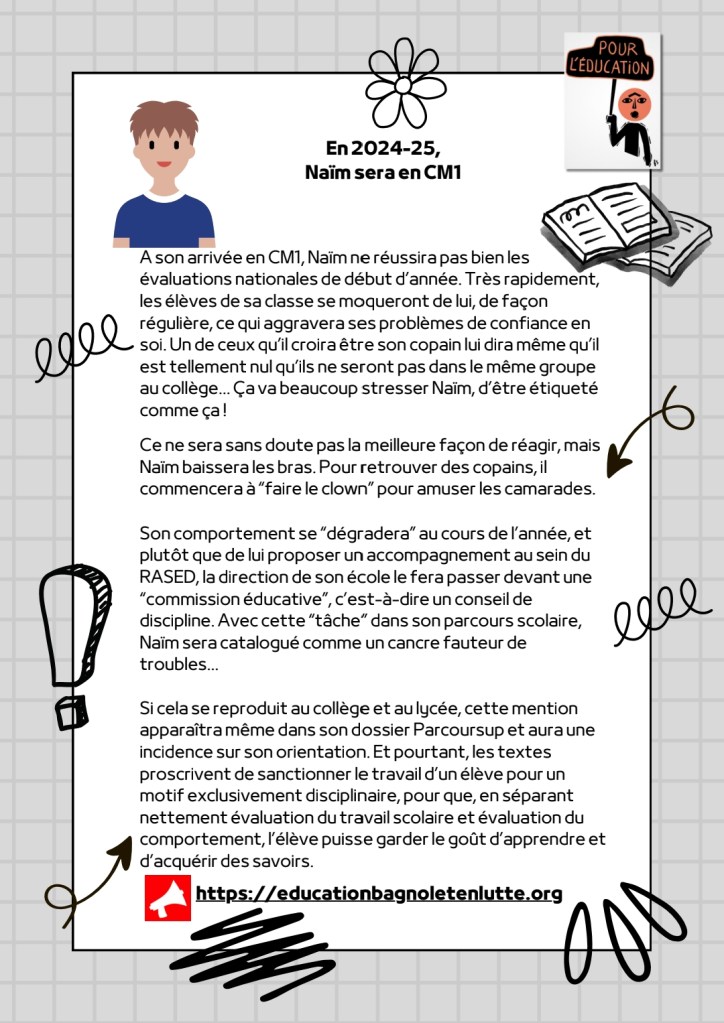 POUR
L'ÉDUCATION
En 2024-25,
Naïm sera en CM1
A son arrivée en CM1, Naïm ne réussira pas bien les
évaluations nationales de début d'année. Très rapidement,
les élèves de sa classe se moqueront de lui, de façon
régulière, ce qui aggravera ses problèmes de confiance en
soi. Un de ceux qu'il croira être son copain lui dira même qu'il
est tellement nul qu'ils ne seront pas dans le même groupe
au collège... Ça va beaucoup stresser Naïm, d'être étiqueté
comme ça !
Ce ne sera sans doute pas la meilleure façon de réagir, mais
Naïm baissera les bras. Pour retrouver des copains, il
commencera à "faire le clown" pour amuser les camarades.
Son comportement se "dégradera" au cours de l'année, et
plutôt que de lui proposer un accompagnement au sein du
RASED, la direction de son école le fera passer devant une
"commission éducative", c'est-à-dire un conseil de
discipline. Avec cette "tâche" dans son parcours scolaire,
Naïm sera catalogué comme un cancre fauteur de
troubles...
Si cela se reproduit au collège et au lycée, cette mention
apparaîtra même dans son dossier Parcoursup et aura une
incidence sur son orientation. Et pourtant, les textes
proscrivent de sanctionner le travail d'un élève pour un
motif exclusivement disciplinaire, pour que, en séparant
nettement évaluation du travail scolaire et évaluation du
comportement, l'élève puisse garder le goût d'apprendre et
d'acquérir des savoirs.
https://educationbagnoletenlutte.org